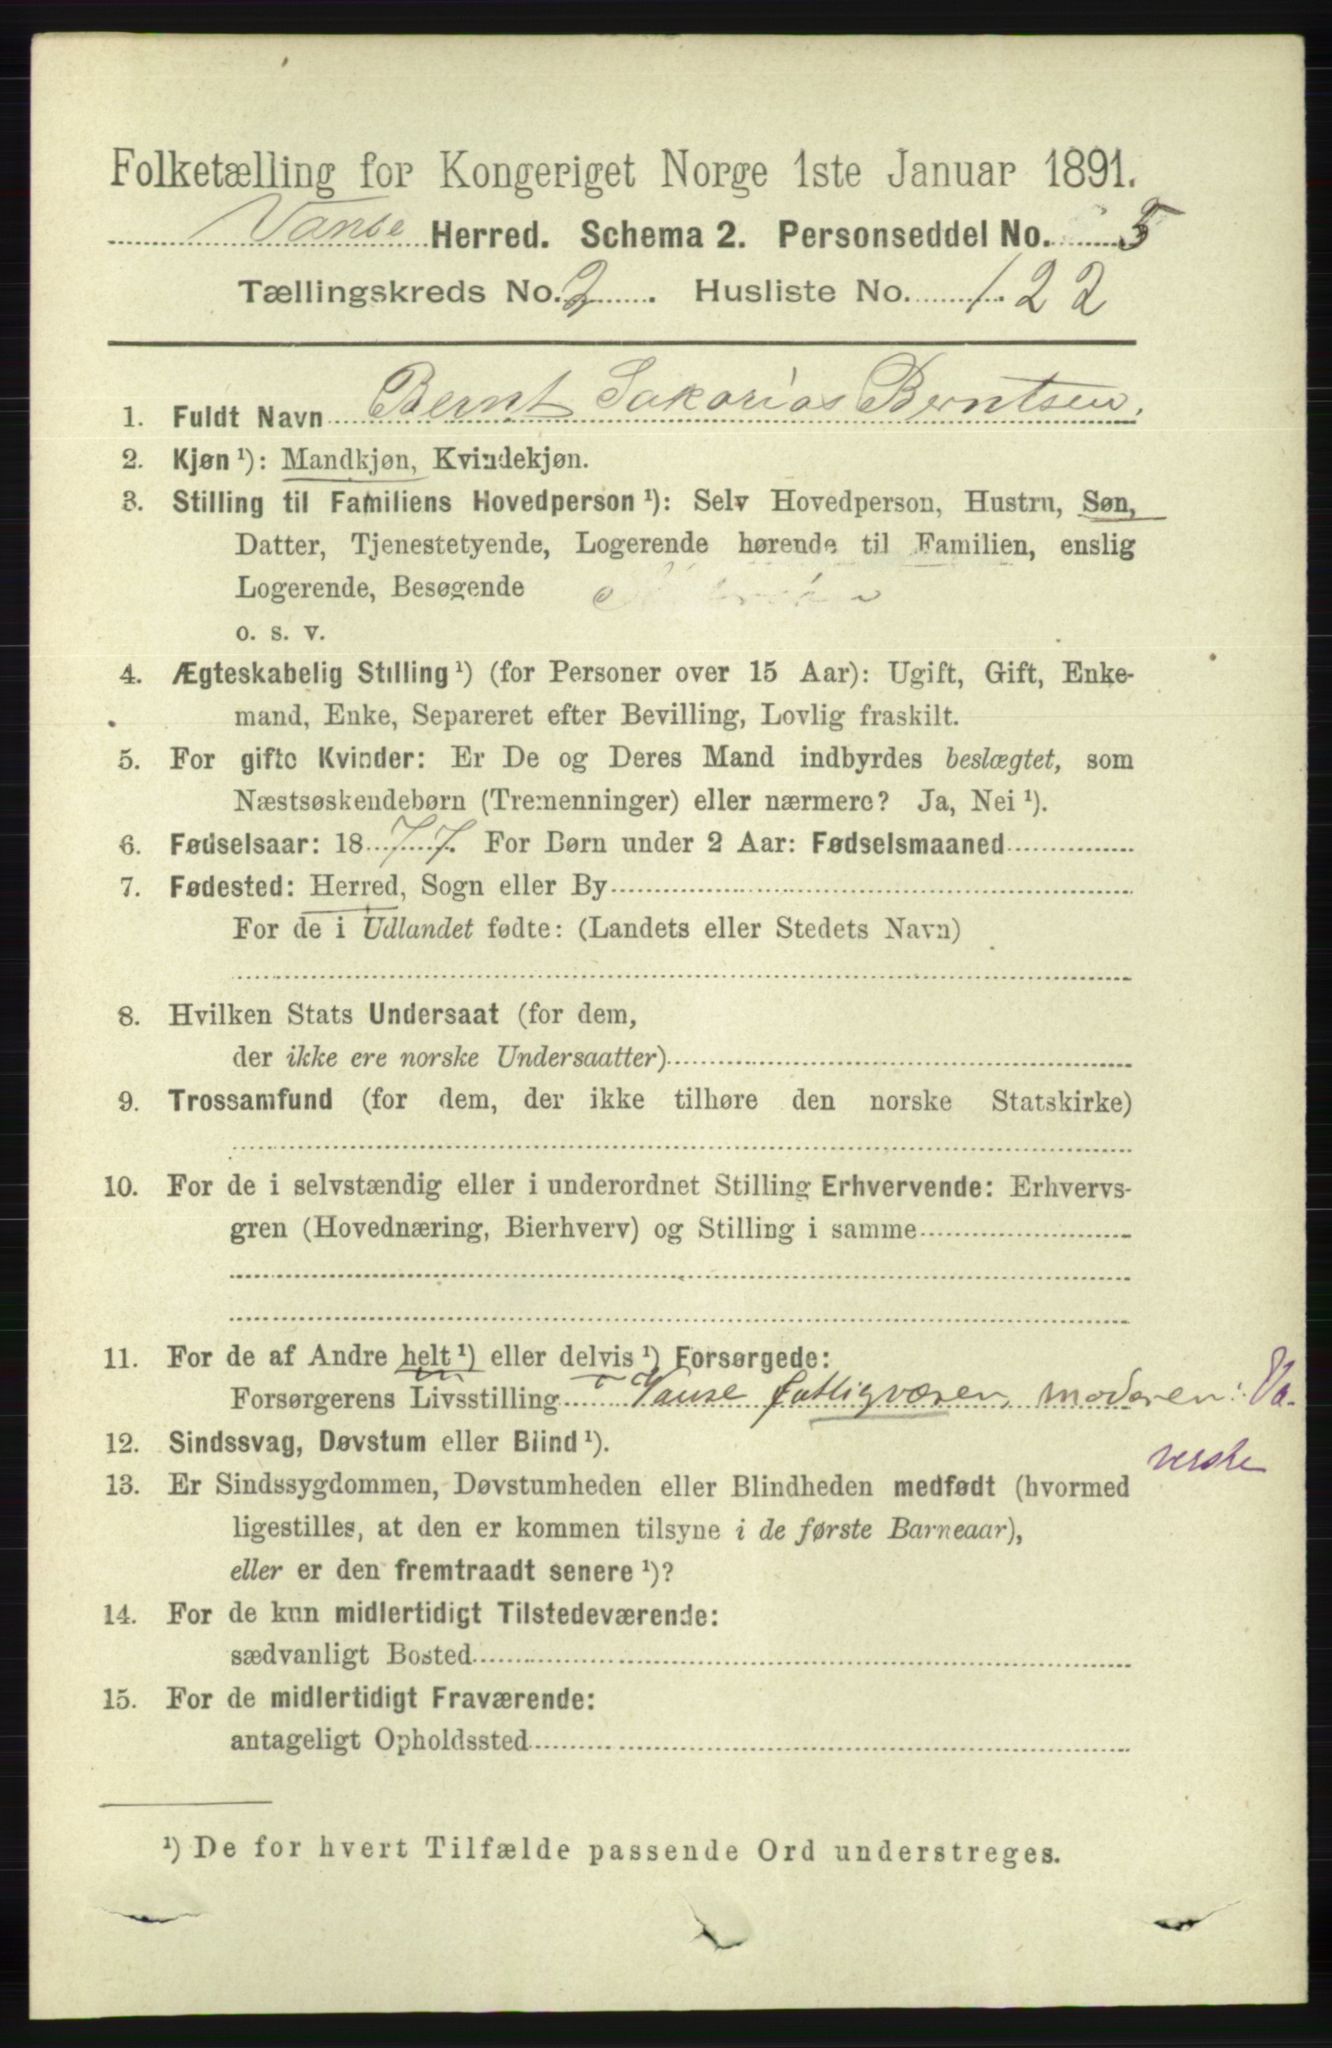 Folketælling for Kongeriget Norge 1ste Januar 1891.
Vanse Herred. Schema 2. Personseddel No. 5
Tællingskreds No. 2 Husliste No. 122
1. Fuldt Navn Bernt Sakarias Berntsen.
2. Kjøn ¹): Mandkjøn, Kvindekjøn.
3. Stilling til Familiens Hovedperson ¹): Selv Hovedperson, Hustru, Søn,
Datter, Tjenestetyende, Logerende hørende til Familien, enslig
Logerende, Besøgende
o. s. v.
4. Ægteskabelig Stilling ¹) (for Personer over 15 Aar): Ugift, Gift, Enke-
mand, Enke, Separeret efter Bevilling, Lovlig fraskilt.
5. For gifte Kvinder: Er De og Deres Mand indbyrdes beslægtet, som
Næstsøskendebørn (Tremenninger) eller nærmere? Ja, Nei ¹).
6. Fødselsaar: 1877. For Børn under 2 Aar: Fødselsmaaned
7. Fødested: Herred, Sogn eller By
For de i Udlandet fødte: (Landets eller Stedets Navn)
8. Hvilken Stats Undersaat (for dem,
der ikke ere norske Undersaatter)
9. Trossamfund (for dem, der ikke tilhøre den norske Statskirke)
10. For de i selvstændig eller i underordnet Stilling Erhvervende: Erhvervs-
gren (Hovednæring, Bierhverv) og Stilling i samme
11. For de af Andre helt ¹) eller delvis ¹) Forsørgede:
Forsørgerens Livsstilling Vanse fattigvæsen, moderen: Væ
verske
12. Sindssvag, Døvstum eller Blind ¹).
13. Er Sindssygdommen, Døvstumheden eller Blindheden medfødt (hvormed
ligestilles, at den er kommen tilsyne i de første Barneaar),
eller er den fremtraadt senere ¹)?
14. For de kun midlertidigt Tilstedeværende:
sædvanligt Bosted
15. For de midlertidigt Fraværende:
antageligt Opholdssted
¹) De for hvert Tilfælde passende Ord understreges.